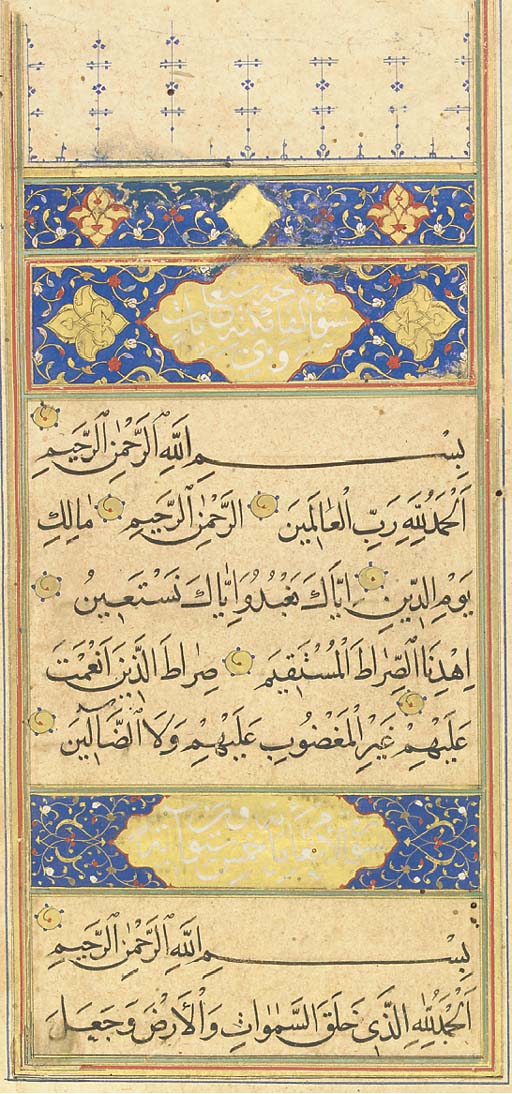 بِسْمِ اللَّهِ الرَّحْمٰنِ الرَّحِيمِ
اَلْحَمْدُ لِلَّهِ رَبِّ الْعَالَمِينَ الرَّحْمٰنِ الرَّحِيمِ مٰالِكِ
يَوْمِ الدِّينِ اِيَّاكَ نَعْبُدُ وَاِيَّاكَ نَسْتَعِينُ
اِهْدِنَا الصِّرَاطَ الْمُسْتَقِيمَ صِرَاطَ الَّذِينَ اَنْعَمْتَ
عَلَيْهِمْ غَيْرِ الْمَغْضُوبِ عَلَيْهِمْ وَلَا الضَّالِّينَ
بِسْمِ اللَّهِ الرَّحْمٰنِ الرَّحِيمِ
اَلْحَمْدُ لِلَّهِ الَّذِي خَلَقَ السَّمٰوَاتِ وَالْاَرْضَ وَجَعَلَ